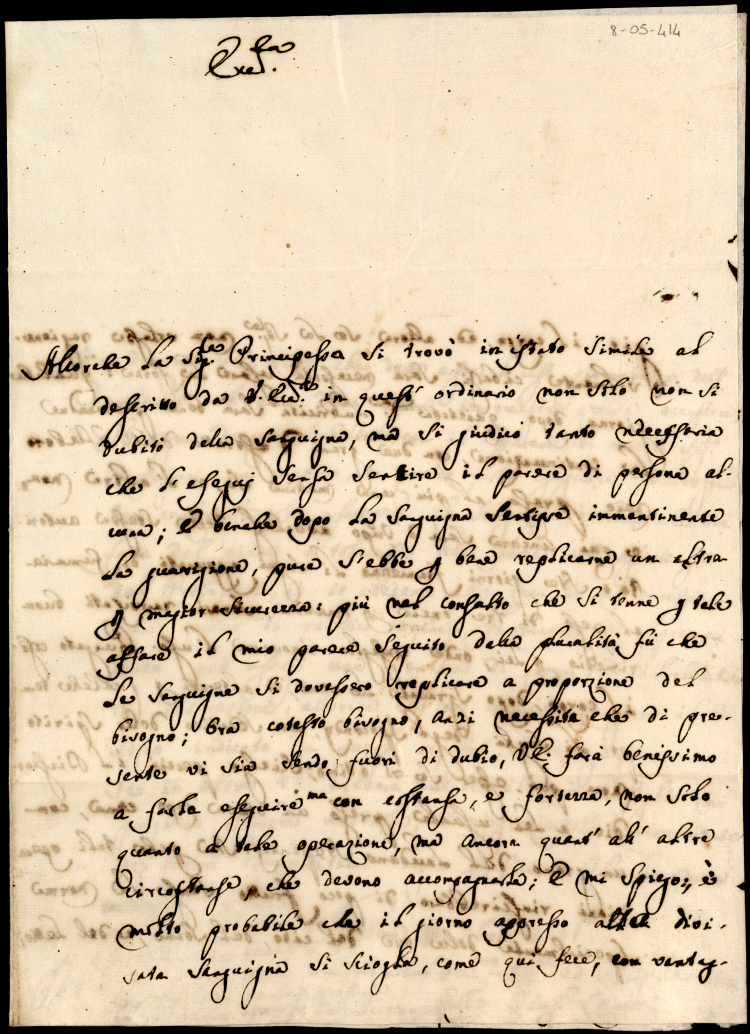 8-05-414
Ecc.za
Allorche la Sig.ra Principessa si trovò in istato simile al
descritto da V. Ecc.za in quest' ordinario non solo non si
dubitò della sanguigna, ma si giudicò tanto necessaria
che s'eseguj senza sentire il parere di persona al-
cuna; e benche dopo la sanguigna sentisse immantinente
la guarigione, pure s'ebbe p bene replicarne un altra
p magior sicurezza: più nel consulto che si tenne p tale
affare il mio parere seguito dalla pluralità fù che
le sanguigne si dovessero replicare a proporzione del
bisogno; Ora cotesto bisogno, anzi necessità che di pre-
sente vi sia sendo fuori di dubio, V.E. farà benissimo
a farle eseguire ma con costanza, e fortezza, non solo
quanto a tale operazione, ma ancora quant' all' altre
circostanze, che devono accompagnarla; E mi spiego; è
molto probabile che il giorno appresso alla divi-
sata sanguigna si sciogla, come qui fece, con vantag-